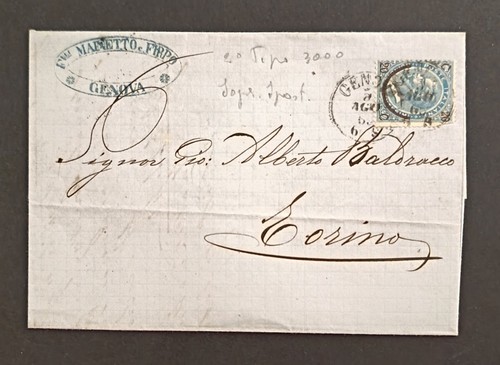 F.lli MAINETTO e FIRPO
GENOVA
20 Tipo 3000
Sopr. Spost.
GEN
AGO
Signor Gio: Alberto Baldracco
Torino